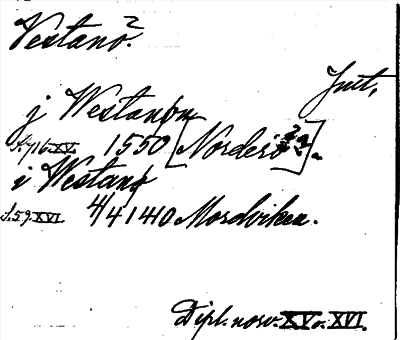 Vestanö.
Jmt,
j Westanøn
S. 716. XV. 1550 [Norderö]
i Westanø
S. 59. XVI. 4/4 1440 Mordviken.
Dipl. norv. XV o. XVI.